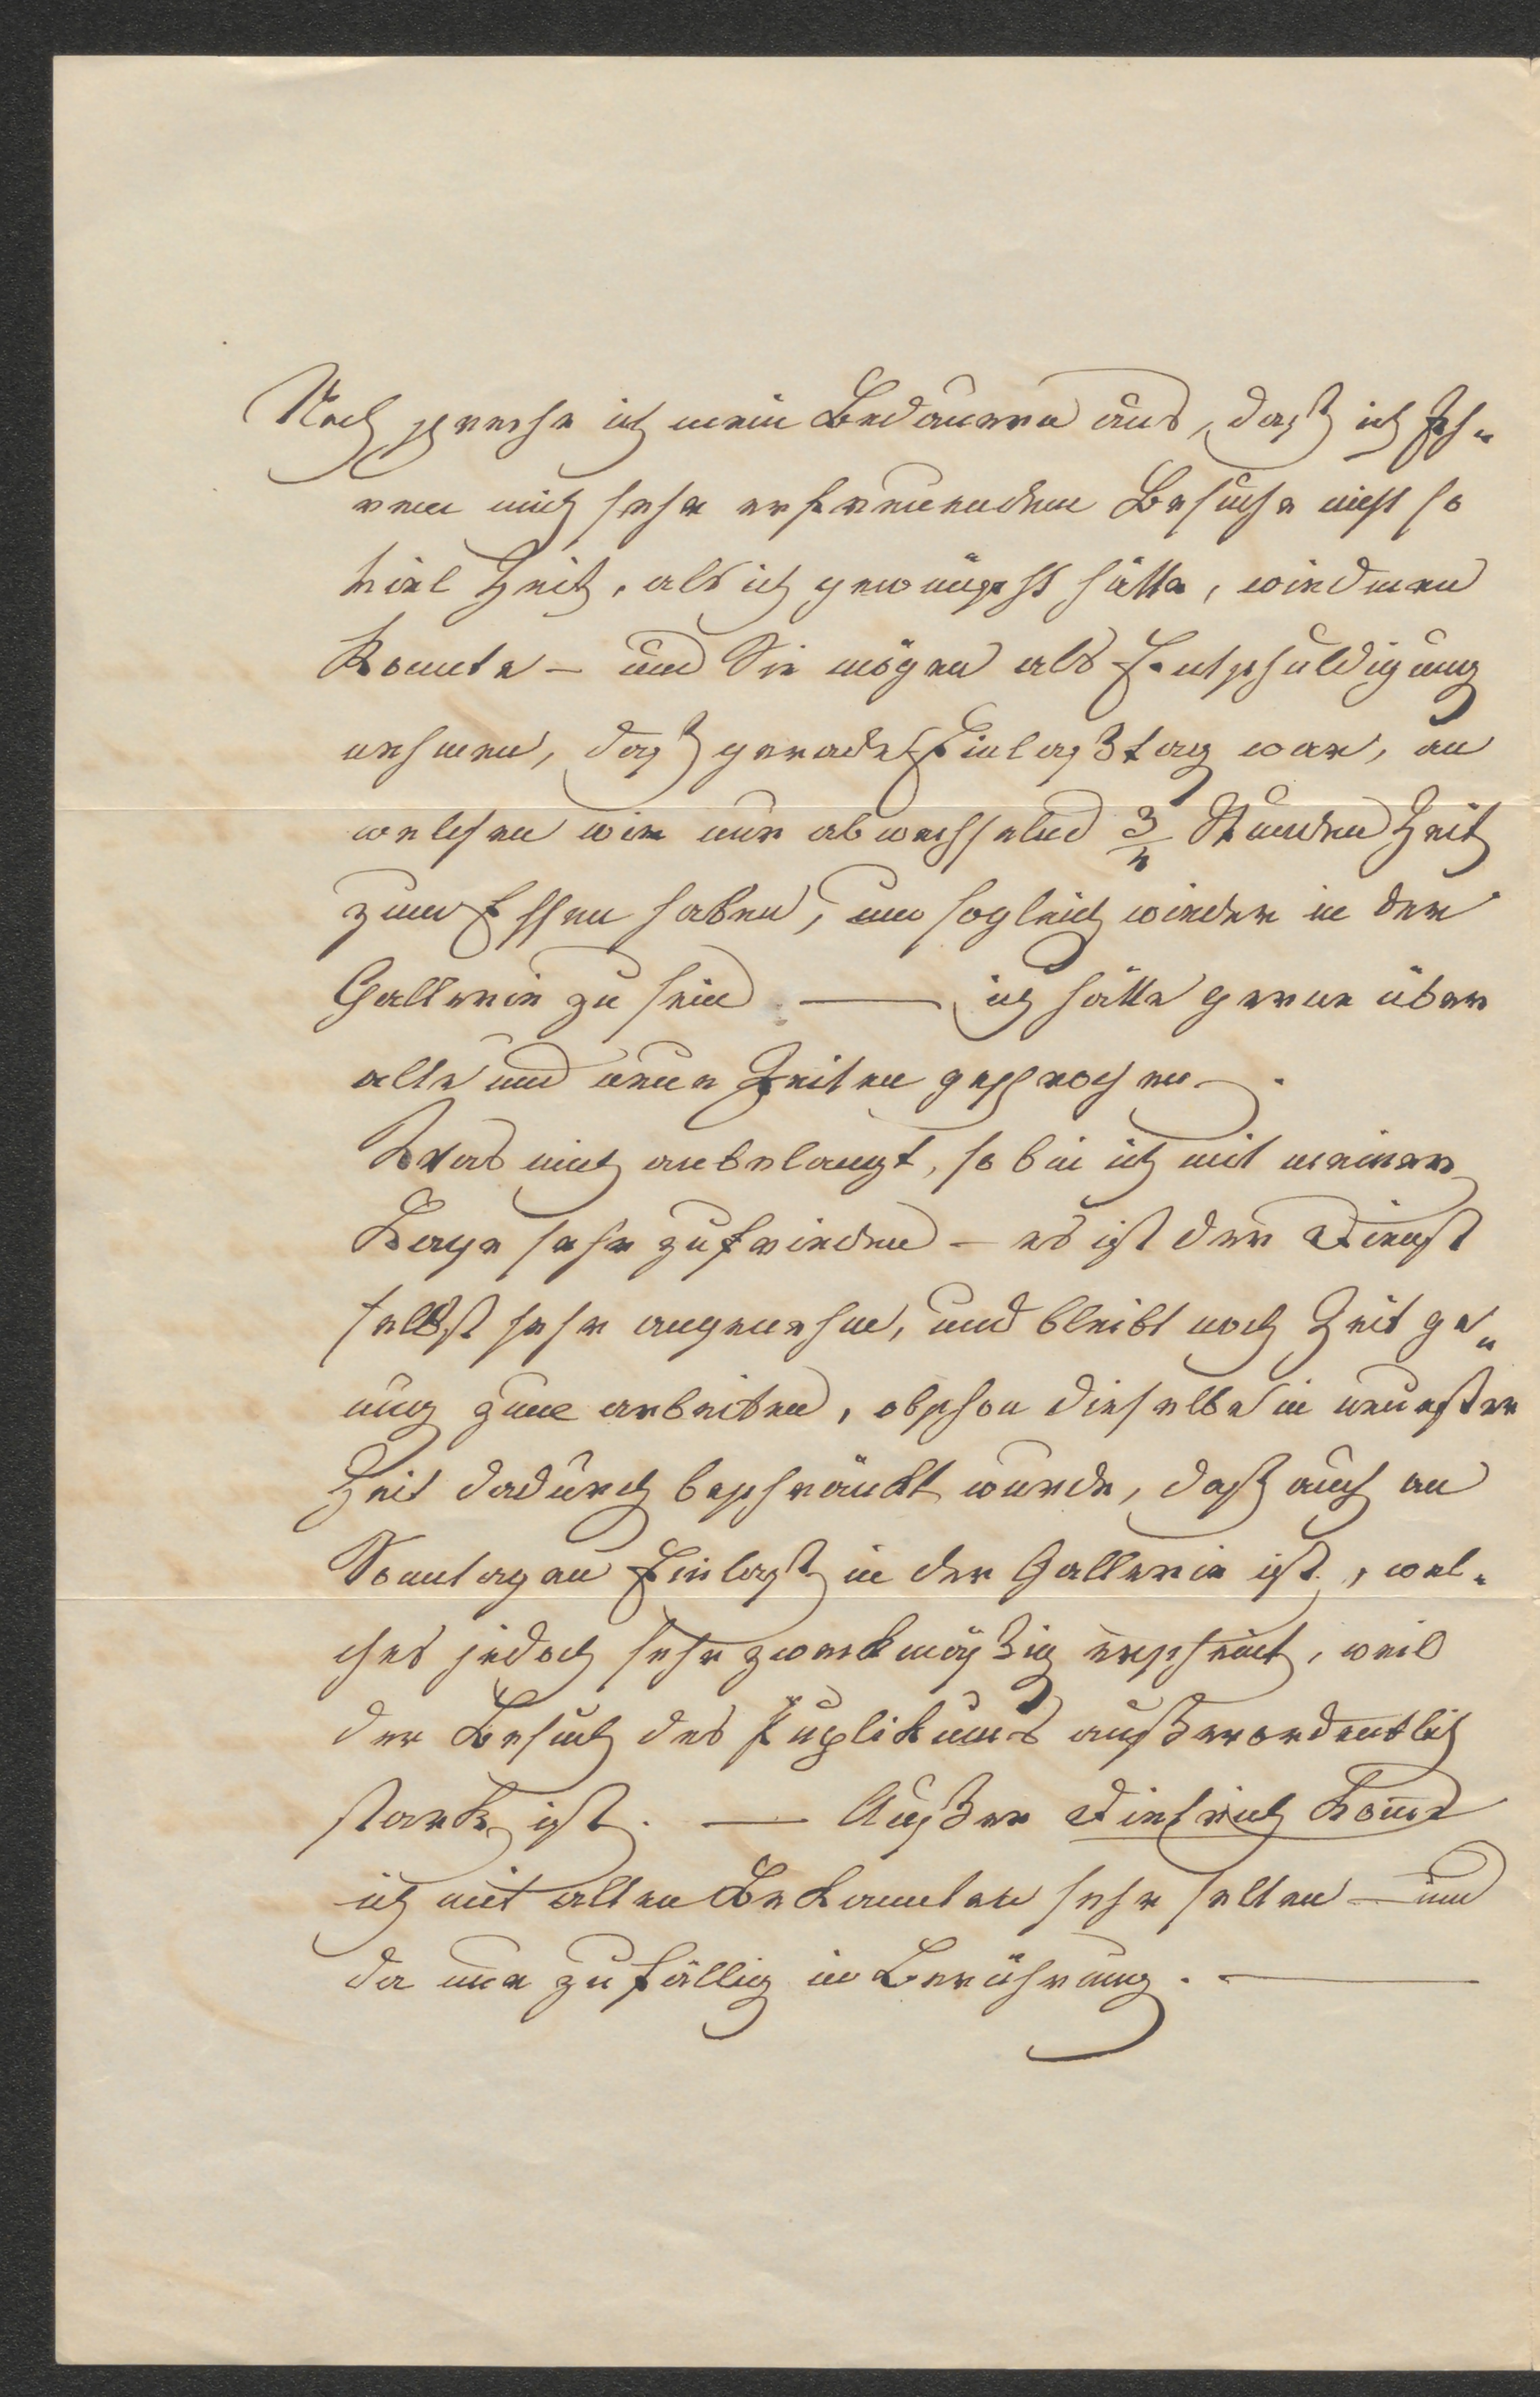 Noch spreche ich mein Bedauern aus, daß ich Ih„
rem mich sehr erfreuenden Besuche nicht so
viel Zeit, als ich gewünscht hätte, widmen
konnte – und Sie mögen als Entschuldigung
nehmen, daß gerade Einlaßtag war, an
welchen wir nur abwechselnd 3/4 Stunden Zeit
zum Essen haben, um sogleich wieder in der
Gallerie zu sein — ich hätte gerne über
alte und neue Zeiten gesprochen.
Was mich anbelangt, so bin ich mit meiner
Lage sehr zufrieden – es ist der Dienst
selbst sehr angenehm, und bleibt noch Zeit ge„
nug zum arbeiten, obschon dieselbe in neuester
Zeit dadurch beschränkt wurde, daß auch an
Sonntagen Einlaß in der Gallerie ist, wel„
ches jedoch sehr zweckmäßig erscheint, weil
der Besuch des Puplikums außerordentlich
stark ist. — Außer Dietrich kom̄e
ich mit alten Bekannten sehr selten – und
da nur zufällig in Berührung. —